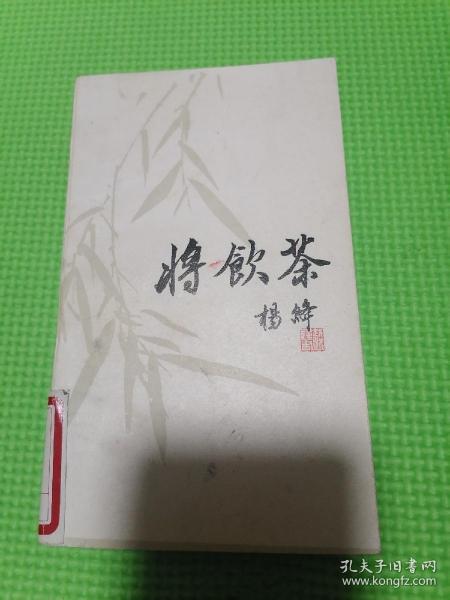 将飲茶
楊絳
孔夫子旧书网
www.kongfz.com